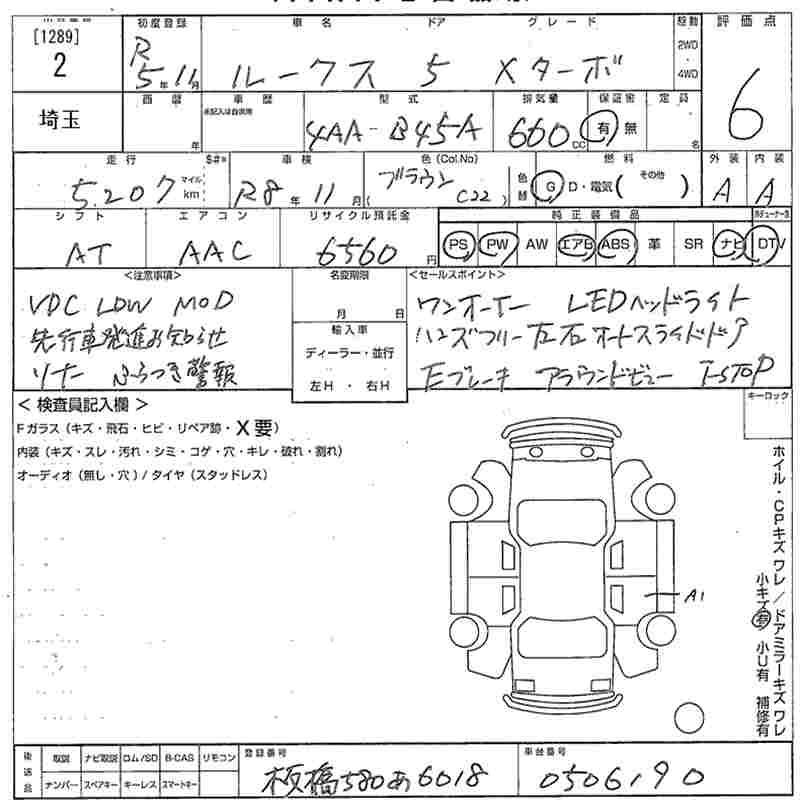 [1289]
2
初度登録 車名 ドア グレード 駆動 評価点
R5年11月 ルークス 5 Xターボ 2WD
4WD
6
埼玉
西暦 車歴 型式 排気量 保証書 定員
未記入は自家用
年 4AA-B45A 660CC 有 無 名
走行 S#* 車検 色(Col.No) 燃料 外装 内装
5,207 マイル km R8年11月 ( ブラウン C22 ) 色替 G D・電気( その他 ) A A
シフト エアコン リサイクル預託金 純正装備品
AT AAC 6560円 PS PW AW エアB ABS 革 SR ナビ DTV
<注意事項> 名変期限 <セールスポイント>
VDC LDW MOD 月 日 ワンオーナー LEDヘッドライト
先行車発進お知らせ 輸入車 ハンズフリー左右オートスライドドア
ソナー ふらつき警報 ディーラー・並行 Eブレーキ アラウンドビュー I-STOP
左H ・ 右H
< 検査員記入欄 > キーロック
Fガラス(キズ・飛石・ヒビ・リペア跡・X要)
内装(キズ・スレ・汚れ・シミ・コゲ・穴・キレ・破れ・割れ)
オーディオ(無し・穴)/タイヤ(スタッドレス)
A1
ホイル・CPキズ ワレ/ドアミラーキズ ワレ
小キズ有 小U有 補修有
後送品 取説 ナビ取説 ロム/SD B-CAS リモコン 登録番号 車台番号
ナンバー スペアキー キーレス スマートキー 板橋580あ6018 0506190